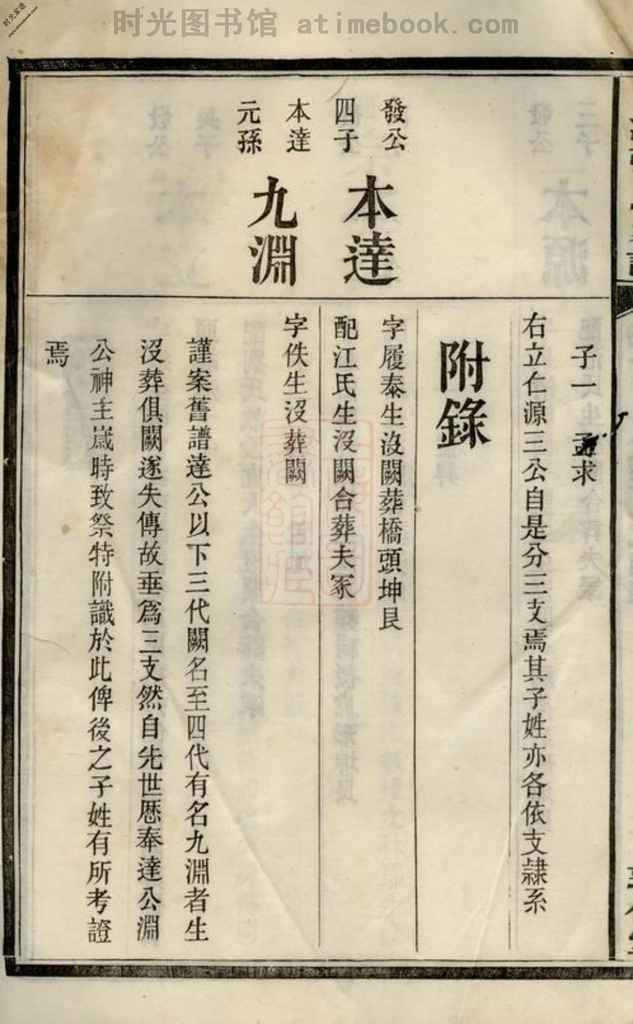 时光图书馆 atimebook.com
子一 孟求
右立仁源三公自是分三支焉其子姓亦各依支隷系
附錄
發公
四子
本達
字履泰生沒闕葬橋頭坤艮
配江氏生沒闕合葬夫冢
本達
元孫
九淵
字佚生沒葬闕
謹案舊譜達公以下三代闕名至四代有名九淵者生
沒葬俱闕遂失傳故垂爲三支然自先世歷奉達公淵
公神主嵗時致祭特附識於此俾後之子姓有所考證
焉